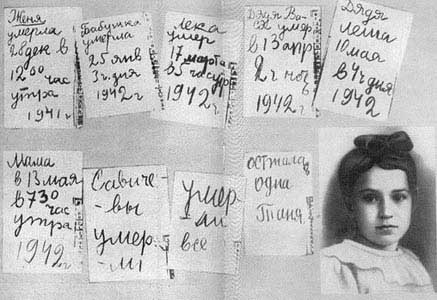 Женя
умерла
28 дек в
12 00 час
утра
1941 г
Бабушка
умерла
25 янв
3 ч. дня
1942 г
Лека
умер
17 марта
в 5 час утр
1942 г
Дядя Ва-
ся умер
в 13 апр
2 ч ноч
1942 г
Дядя
Леша
10 мая
в 4 ч дня
1942
Мама
в 13 мая
в 7 30
час
утра
1942 г
Савиче-
вы
умер-
ли
умер
ли
все
остала
одна
Таня